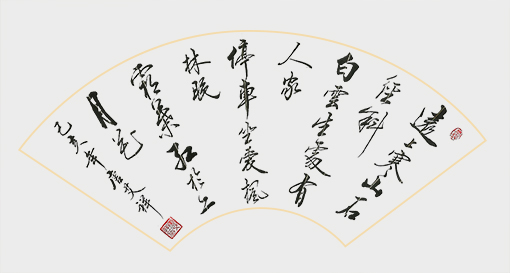 遠上寒山石
徑斜
白雲生處有
人家
停車坐愛楓
林晚
霜葉紅於二
月花
己亥年